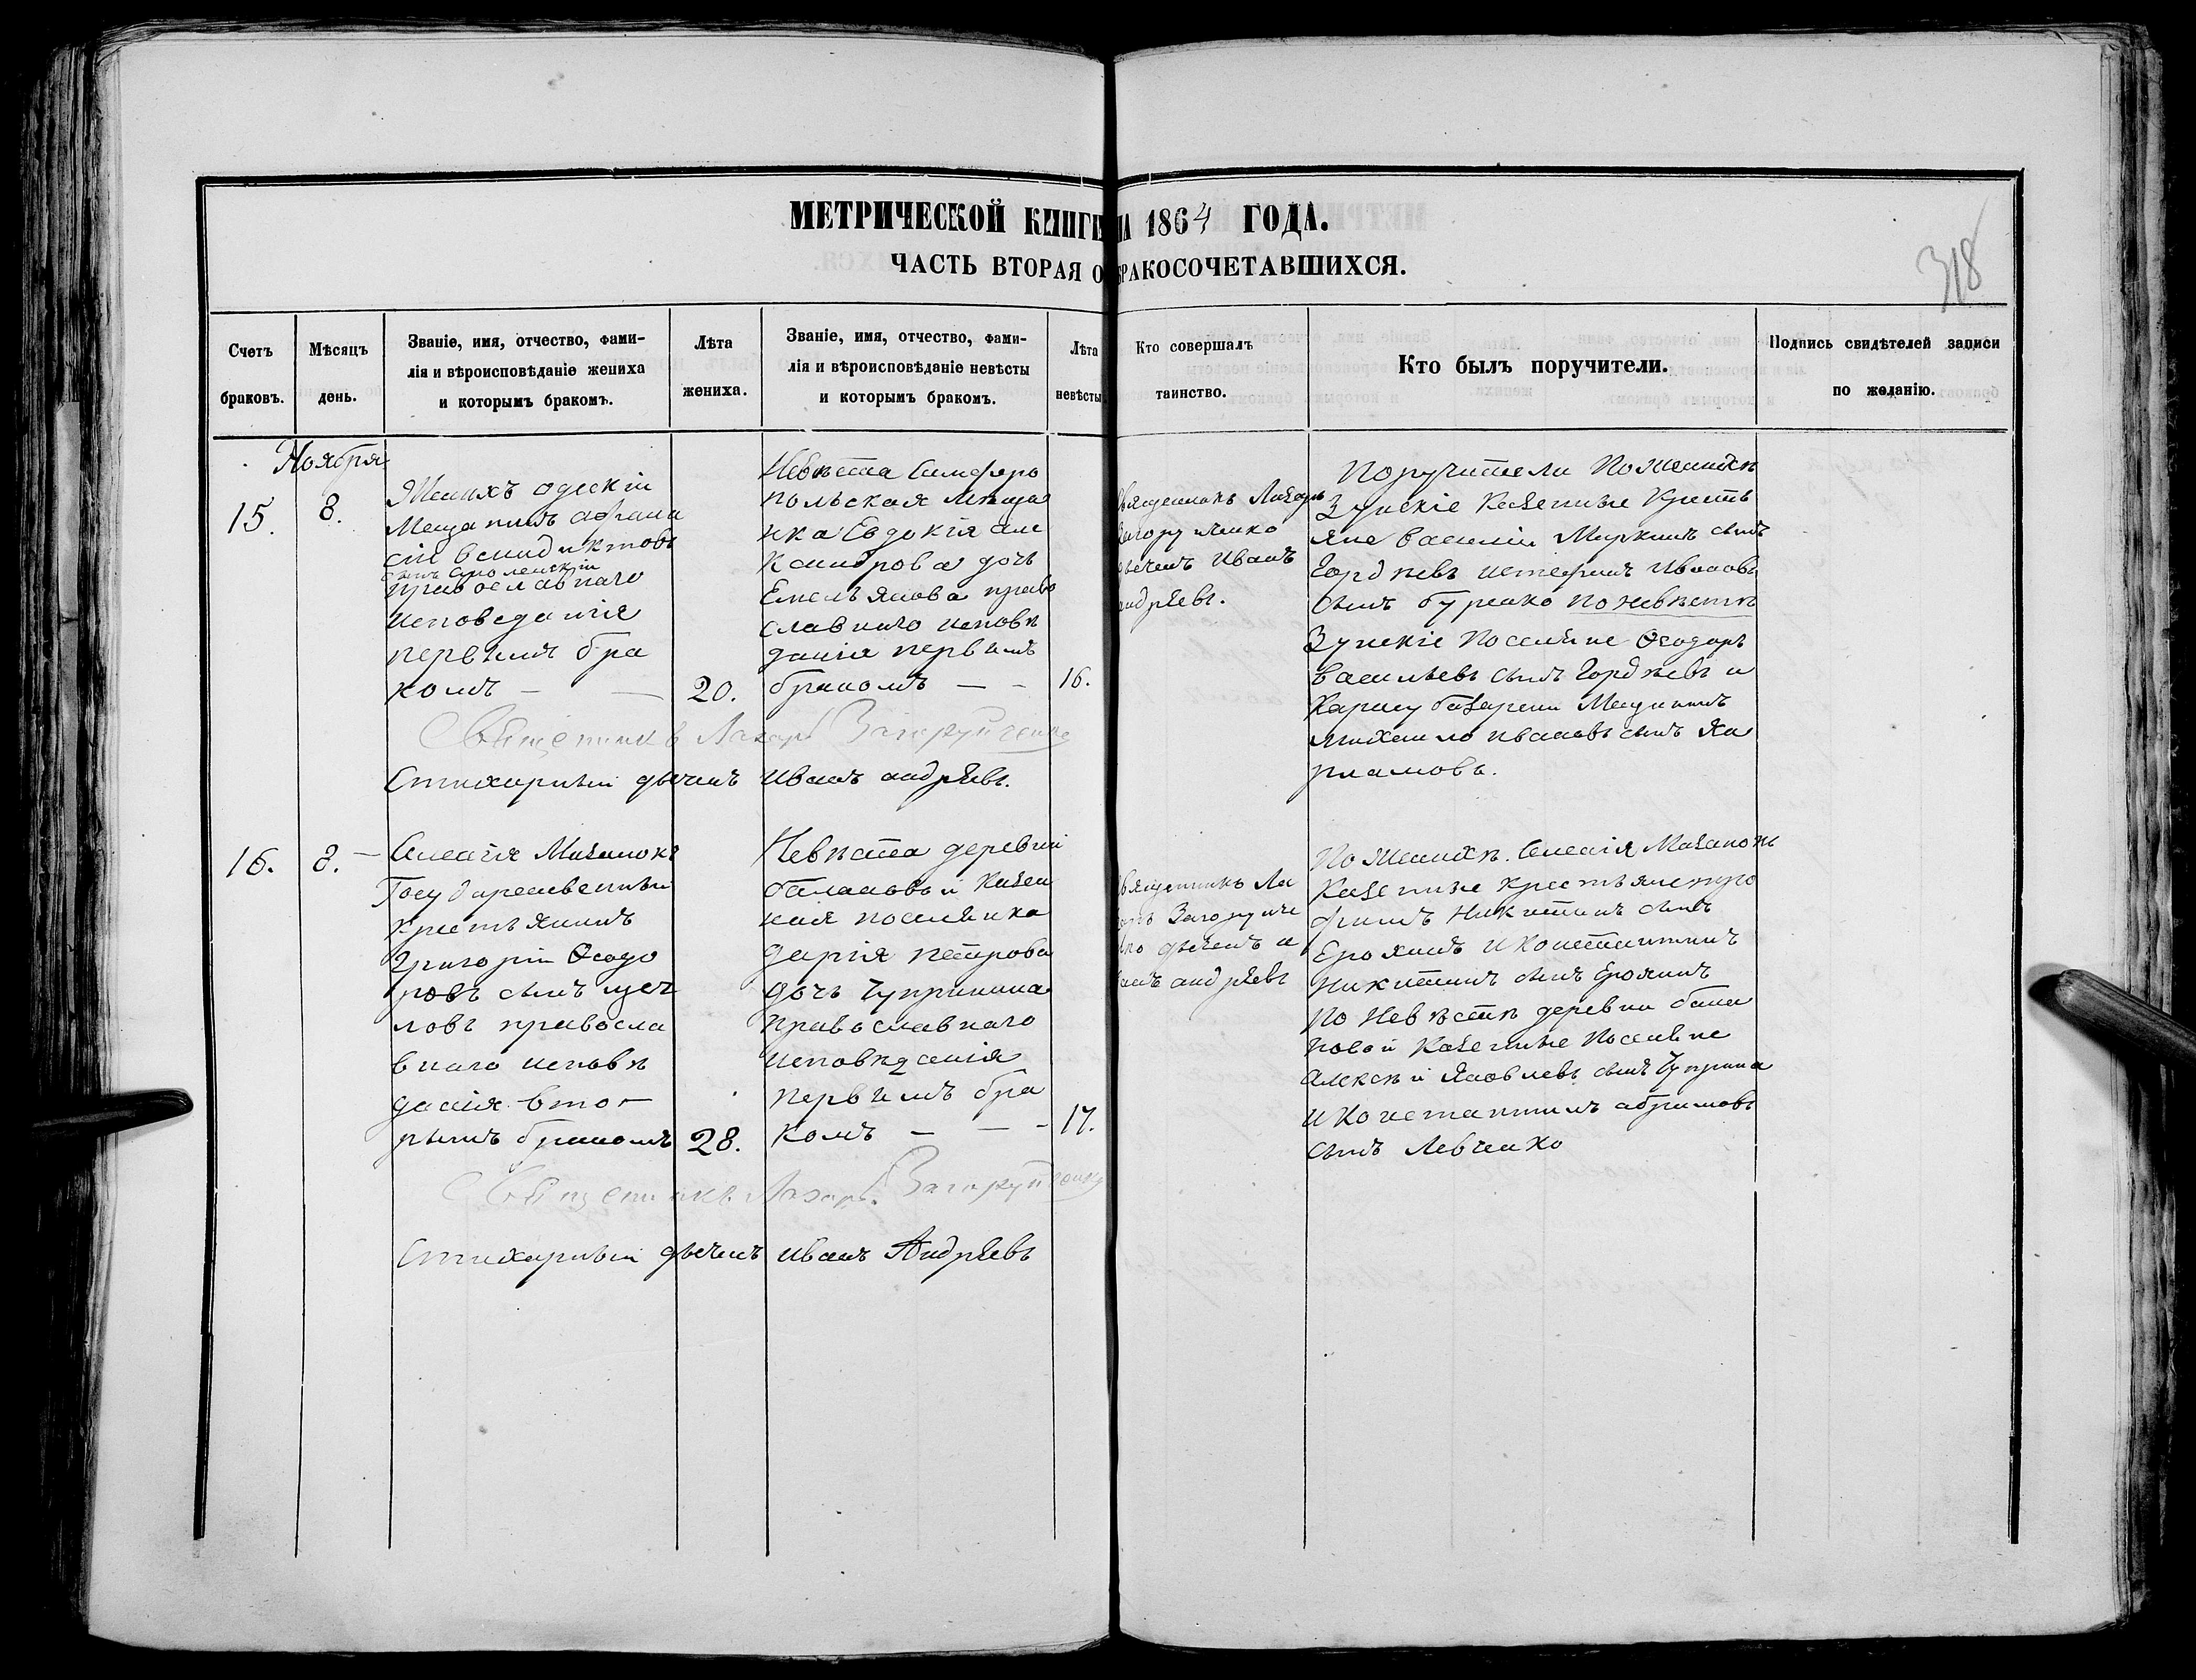 МЕТРИЧЕСКОЙ КНИГИ НА 1864 ГОДА.
ЧАСТЬ ВТОРАЯ О БРАКОСОЧЕТАВШИХСЯ.
318
Счетъ браковъ.
Мѣсяцъ день.
Званіе, имя, отчество, фами-
лія и вѣроисповѣданіе жениха
и которымъ бракомъ.
Лѣта
жениха.
Званіе, имя, отчество, фами-
лія и вѣроисповѣданіе невѣсты
и которымъ бракомъ.
Лѣта
невѣсты
Кто совершалъ
таинство.
Кто былъ поручители.
Подпись свидѣтелей записи
по желанію.
Ноября
15.
8.
Женихъ одескій
Мещанинъ Афана
сій венидиктовъ
сынъ Смоленскій
православнаго
исповеданія
первымъ бра
комъ — —
20.
Невѣста Симферо
польская мѣща
нка Евдокія Але
ксандрова дочь
Емельянова право
славнаго исповѣ
данія первымъ
бракомъ — -
16.
Священникъ Лазарь
Загоруйченко
дьячекъ Иванъ
андрѣевъ.
Поручители по женихѣ
Зуйскіе Казенные Кресть
яне василій Маркинъ сынъ
Гордѣевъ Ивановъ
сынъ буренко по невѣстѣ
Зуйскіе поселяне Ѳеодоръ
васильевъ сынъ Гордѣевъ и
Карасубазарскій Мещанинъ
михаило ивановъ сынъ Ха
рламовъ.
Священникъ Лазарь Загоруйченко
Стихарный дьячекъ Иванъ андрѣевъ.
16.
8. —
Селенія Мазанокъ
Государственный
крестьянинъ
Григорій Ѳеодо
ровъ сынъ
ловъ правосла
внаго исповѣ
данія вто-
рымъ бракомъ
28.
Невѣста деревни
балановой Казен
ная поселянка
дарія петрова
дочь Чупринина
православнаго
исповѣданія
первымъ бра
комъ — — -
17.
Священникъ Ла
зарь Загоруйче
нко дьячекъ и
ванъ андрѣевъ
По женихѣ. Селенія Мазанокъ
Казенные крестьяне тро
фимъ Никитинъ сынъ
Ерохинъ и Константинъ
никитинъ сынъ Ерохинъ
по невѣстѣ деревни бала
новой Казенные поселяне
Алексѣй Яковлевъ сынъ Чуприна
и Константинъ абрамовъ
сынъ Левченко
Священникъ Лазарь Загоруйченко
Стихарный дьячекъ иванъ Андрѣевъ